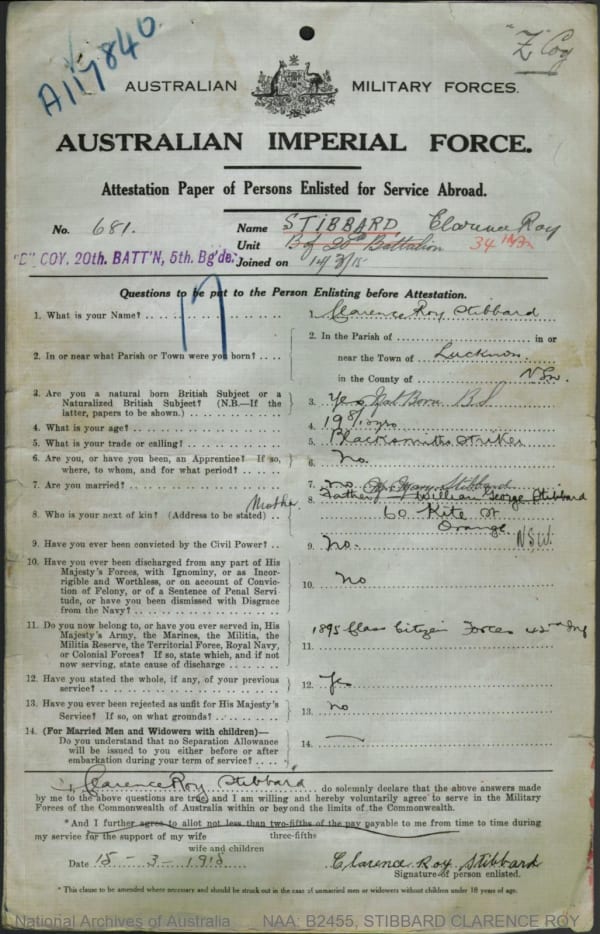 A117840.
"Z" Coy
AUSTRALIAN MILITARY FORCES.
AUSTRALIAN IMPERIAL FORCE.
Attestation Paper of Persons Enlisted for Service Abroad.
No. 681. Name STIBBARD Clarence Roy
Unit B of 20th Battalion 34
COY. 20th. BATT'N, 5th. Bg'de. Joined on 14/3/15
Questions to be put to the Person Enlisting before Attestation.
1. What is your Name? 1. Clarence Roy Stibbard
2. In or near what Parish or Town were you born? 2. In the Parish of in or
near the Town of Lucknow
in the County of NSW.
3. Are you a natural born British Subject or a
Naturalized British Subject? (N.B.—If the
latter, papers to be shown.) 3. Yes Nat Born B.S
4. What is your age? 4. 19
5. What is your trade or calling? 5. Blacksmiths Striker
6. Are you, or have you been, an Apprentice? If so,
where, to whom, and for what period? 6. No.
7. Are you married? 7. no
Mrs Mary Stibbard
8. Who is your next of kin? (Address to be stated) Mother 8. Father William George Stibbard
60 Kite St
Orange NSW.
9. Have you ever been convicted by the Civil Power? 9. No.
10. Have you ever been discharged from any part of His
Majesty's Forces, with Ignominy, or as Incor-
rigible and Worthless, or on account of Convic-
tion of Felony, or of a Sentence of Penal Servi-
tude, or have you been dismissed with Disgrace
from the Navy? 10. No
11. Do you now belong to, or have you ever served in, His
Majesty's Army, the Marines, the Militia, the
Militia Reserve, the Territorial Force, Royal Navy,
or Colonial Forces? If so, state which, and if not
now serving, state cause of discharge 11. 1895 Class Citizen Forces 42nd Inf
12. Have you stated the whole, if any, of your previous
service? 12. Yes
13. Have you ever been rejected as unfit for His Majesty's
Service? If so, on what grounds? 13. no
14. (For Married Men and Widowers with children)—
Do you understand that no Separation Allowance
will be issued to you either before or after
embarkation during your term of service? 14. —
I, Clarence Roy Stibbard do solemnly declare that the above answers made
by me to the above questions are true, and I am willing and hereby voluntarily agree to serve in the Military
Forces of the Commonwealth of Australia within or beyond the limits of the Commonwealth.
*And I further agree to allot not less than two-fifths of the pay payable to me from time to time during
three-fifths
my service for the support of my wife
wife and children
Date 15-3-1915 Clarence Roy Stibbard
Signature of person enlisted.
* This clause to be amended where necessary and should be struck out in the case of unmarried men or widowers without children under 18 years of age.
National Archives of Australia NAA: B2455, STIBBARD CLARENCE ROY